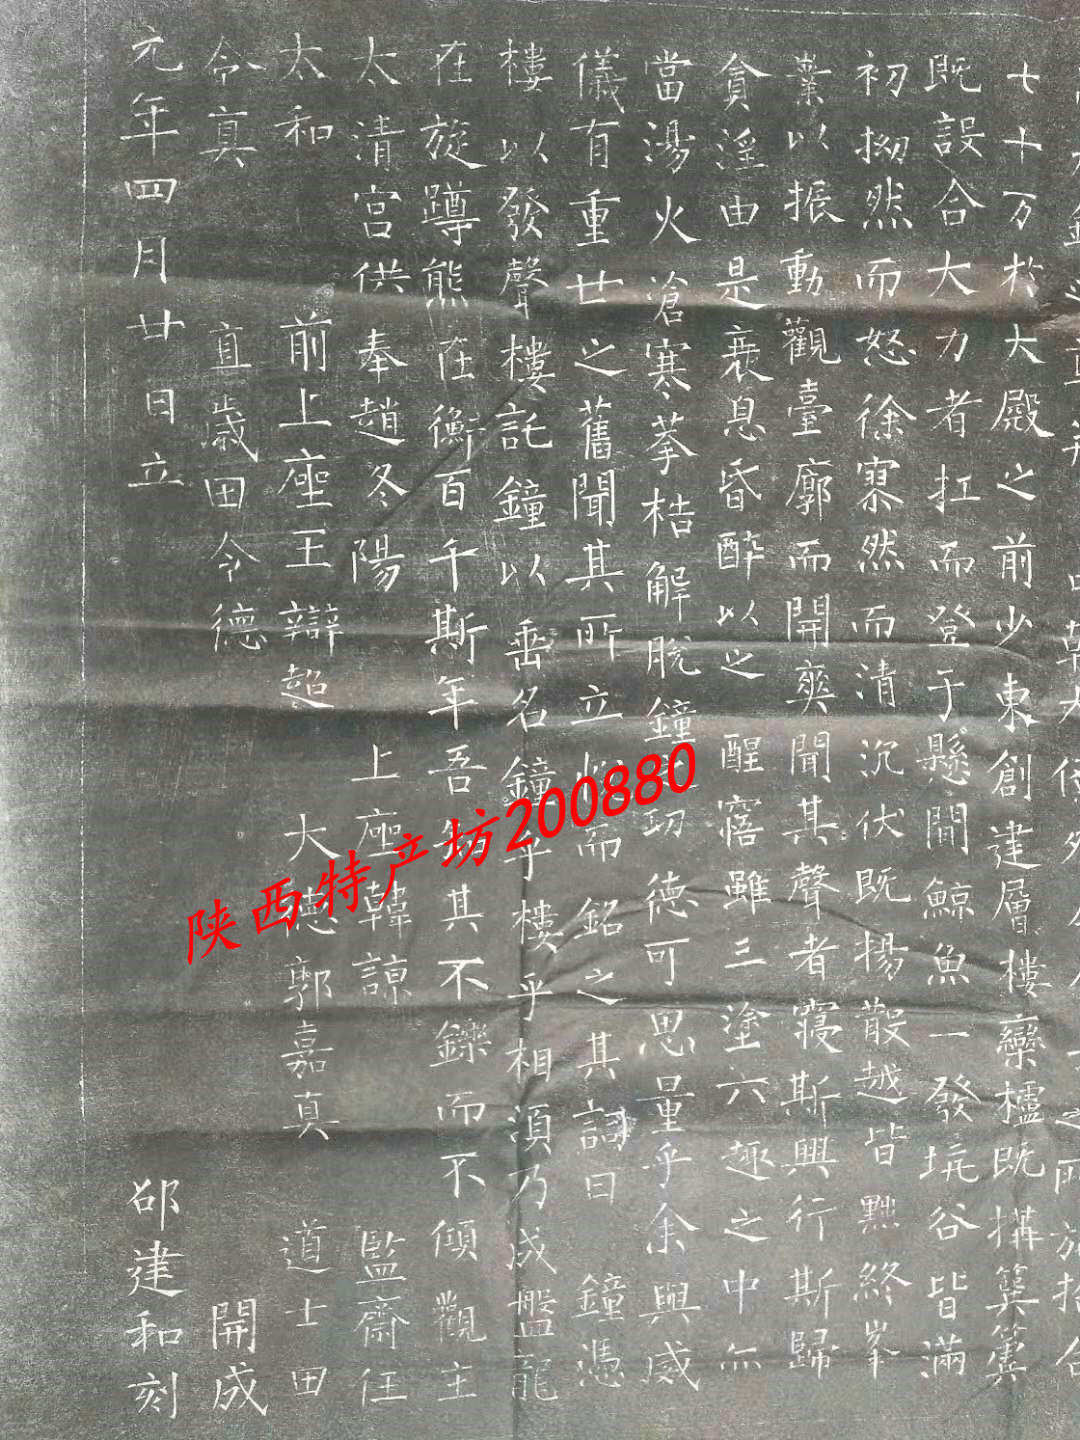 七十万於大殿之前少東創建層樓欒櫨既搆簨簴
既設合大力者扛而登于懸間鯨魚一發坑谷皆滿
初拗然而怒徐寥然而清沉伏既揚散越皆黜終峯
業以振動觀臺廓而開爽聞其聲者寢斯興行斯歸
貪淫由是衰息昏醉以之醒寤雖三塗六趣之中亦
當湯火滄寒拲梏解脫鐘之功德可思量乎余與威
儀有重廿之舊聞其所立悅而銘之其詞曰 鐘憑
樓以發聲樓託鐘以垂名鐘乎樓乎相須乃成盤龍
在旋蹲熊在衡百千斯年吾銘其不鑠而不傾觀主
太清宮供奉趙冬陽 上座韓諒 監齋任
太和 前上座王辯超 大德郭嘉真 道士田
令真 直歲田令德 開成
元年四月廿日立 邵建和刻
陕西特产坊200880